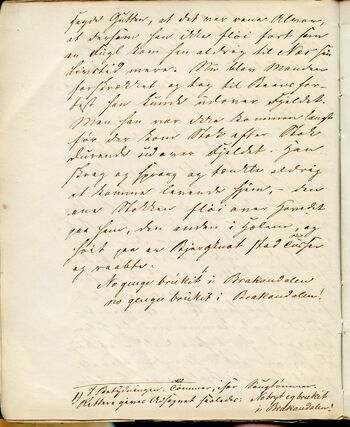 sagde Gutten, at det var rene Alvor,
at dersom han ikke fløi fort som
en Fugl kom han aldrig til Næs i sin
Livstid mere. Nu blev Manden
forskrækket og tog til Beens for-
test han kunde udover Fjeldet.
Men han var ikke kommen langt
før der kom Stok efter Stok
durende udover Fjeldet. Han
skreg og sprang og tænkte aldrig
at komme levende hjem, – den
ene Stokken fløi over Hovedet
paa ham, den anden i Hælene, og
høit paa en Bjergknat stod
og raabte:
No genge brukit i Brakandalen
no genge brukit i Brakandalen!
1) I Betydningen: Tømmer, især Saugtømmer.
Rettere gives Udsagnet saaledes: No bryt eg brukit
i Brakandalen!